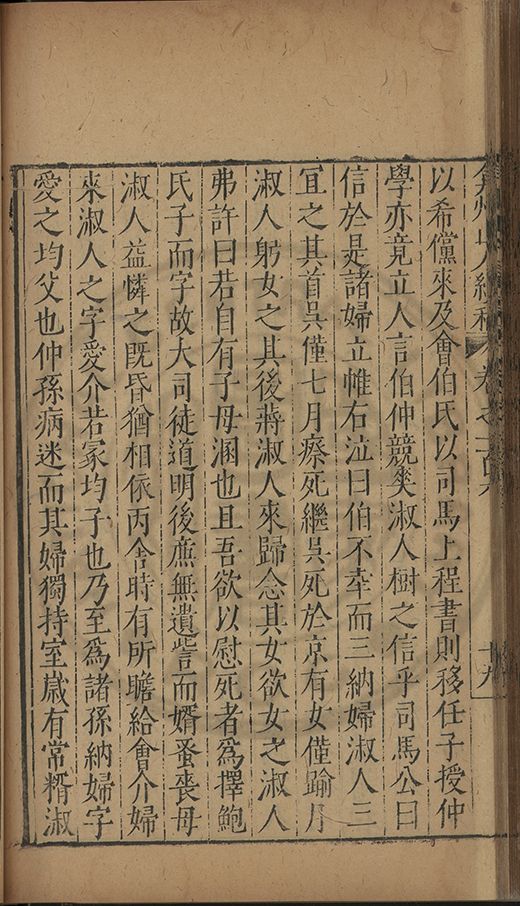 弇州山人續稿 卷之一百六 十九
以希儻來及會伯氏以司馬上程書則移任子授仲
學亦竟立人言伯仲競爽淑人樹之信乎司馬公曰
信於是諸婦立帷右泣曰伯不幸而三納婦淑人三
宜之其首吳僅七月瘵死繼吳死於京有女僅踰月
淑人躬女之其後蔣淑人來歸念其女欲女之淑人
弗許曰若自有子母溷也且吾欲以慰死者爲擇鮑
氏子而字故大司徒道明後庶無遺訾而婿蚤喪母
淑人益憐之既昏猶相依丙舍時有所贍給會介婦
來淑人之字愛介若冢均子也乃至爲諸孫納婦字
愛之均父也仲孫病迷而其婦獨持室歲有常糈淑